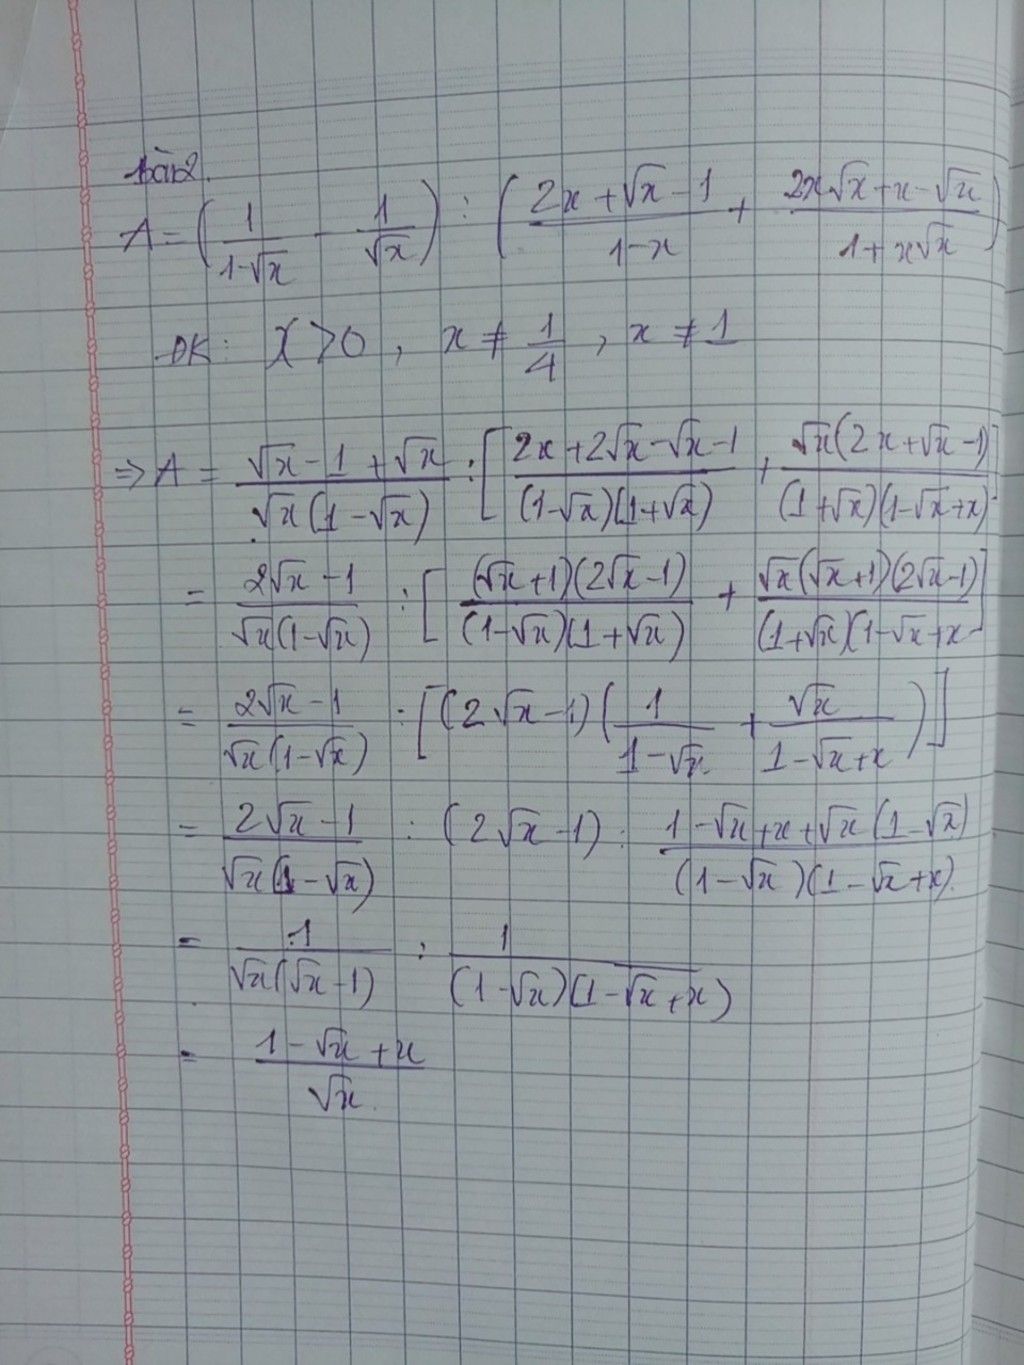 bài 2.
A = (1/(1-√x) - 1/√x) : ((2x+√x-1)/(1-x) + (2x√x+x-√x)/(1+x√x))
ĐK: x > 0, x ≠ 1/4, x ≠ 1
⇒ A = (√x-1+√x)/(√x(1-√x)) : [(2x+2√x-√x-1)/((1-√x)(1+√x)) + (√x(2x+√x-1))/((1+√x)(1-√x+x))]
= (2√x-1)/(√x(1-√x)) : [((√x+1)(2√x-1))/((1-√x)(1+√x)) + (√x(√x+1)(2√x-1))/((1+√x)(1-√x+x))]
= (2√x-1)/(√x(1-√x)) : [(2√x-1)(1/(1-√x) + √x/(1-√x+x))]
= (2√x-1)/(√x(1-√x)) : (2√x-1) . (1-√x+x+√x(1-√x))/((1-√x)(1-√x+x))
= 1/(√x(√x-1)) : 1/((1-√x)(1-√x+x))
= (1-√x+x)/√x